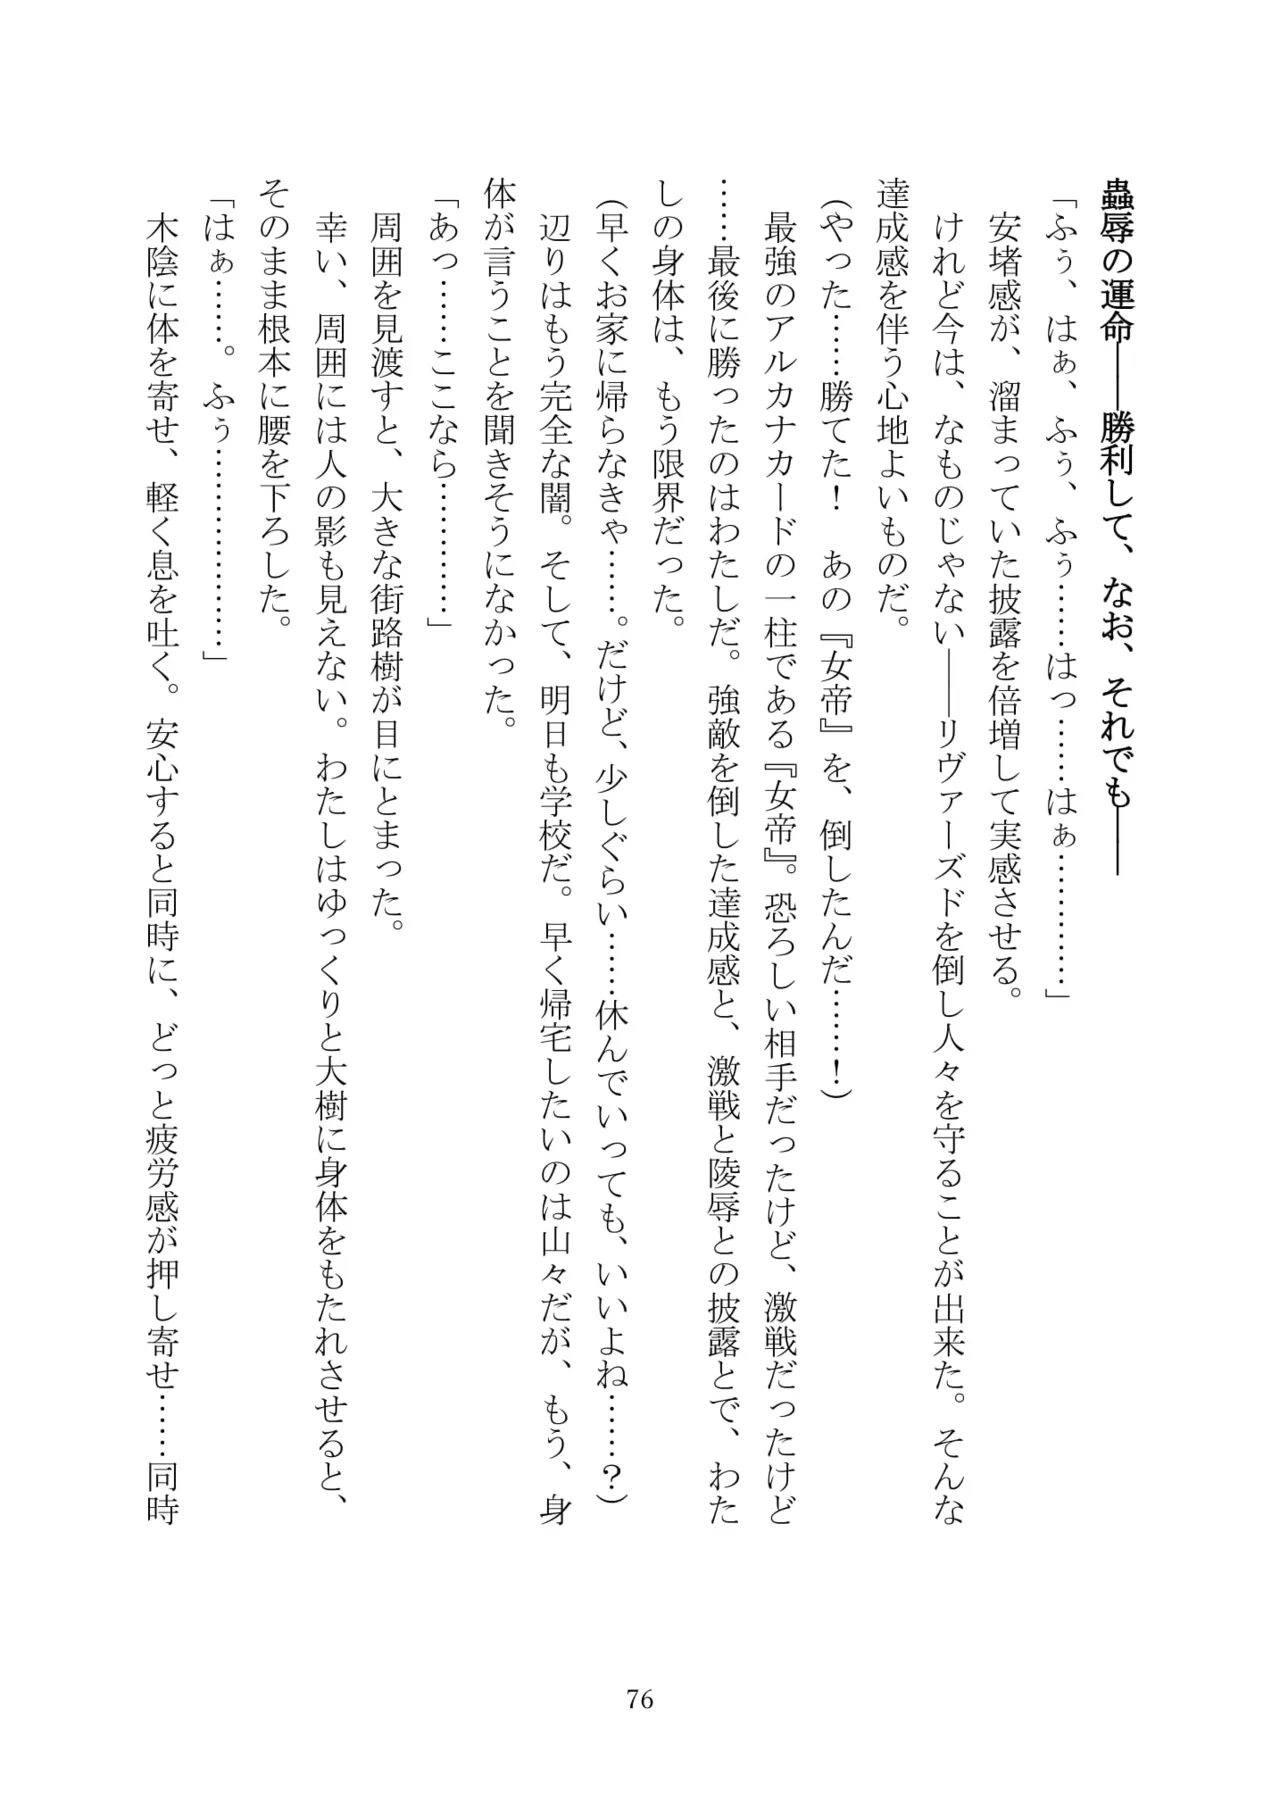 蟲辱の運命――勝利して、なお、それでも――
「ふぅ、はぁ、ふぅ、ふぅ……はっ……はぁ…………」
安堵感が、溜まっていた披露を倍増して実感させる。
けれど今は、なものじゃない――リヴァーズドを倒し人々を守ることが出来た。そんな
達成感を伴う心地よいものだ。
（やった……勝てた！　あの『女帝』を、倒したんだ……！）
最強のアルカナカードの一柱である『女帝』。恐ろしい相手だったけど、激戦だったけど
……最後に勝ったのはわたしだ。強敵を倒した達成感と、激戦と陵辱との披露とで、わた
しの身体は、もう限界だった。
（早くお家に帰らなきゃ……。だけど、少しぐらい……休んでいっても、いいよね……？）
辺りはもう完全な闇。そして、明日も学校だ。早く帰宅したいのは山々だが、もう、身
体が言うことを聞きそうになかった。
「あっ……ここなら…………」
周囲を見渡すと、大きな街路樹が目にとまった。
幸い、周囲には人の影も見えない。わたしはゆっくりと大樹に身体をもたれさせると、
そのまま根本に腰を下ろした。
「はぁ……。ふぅ………………」
木陰に体を寄せ、軽く息を吐く。安心すると同時に、どっと疲労感が押し寄せ……同時
76